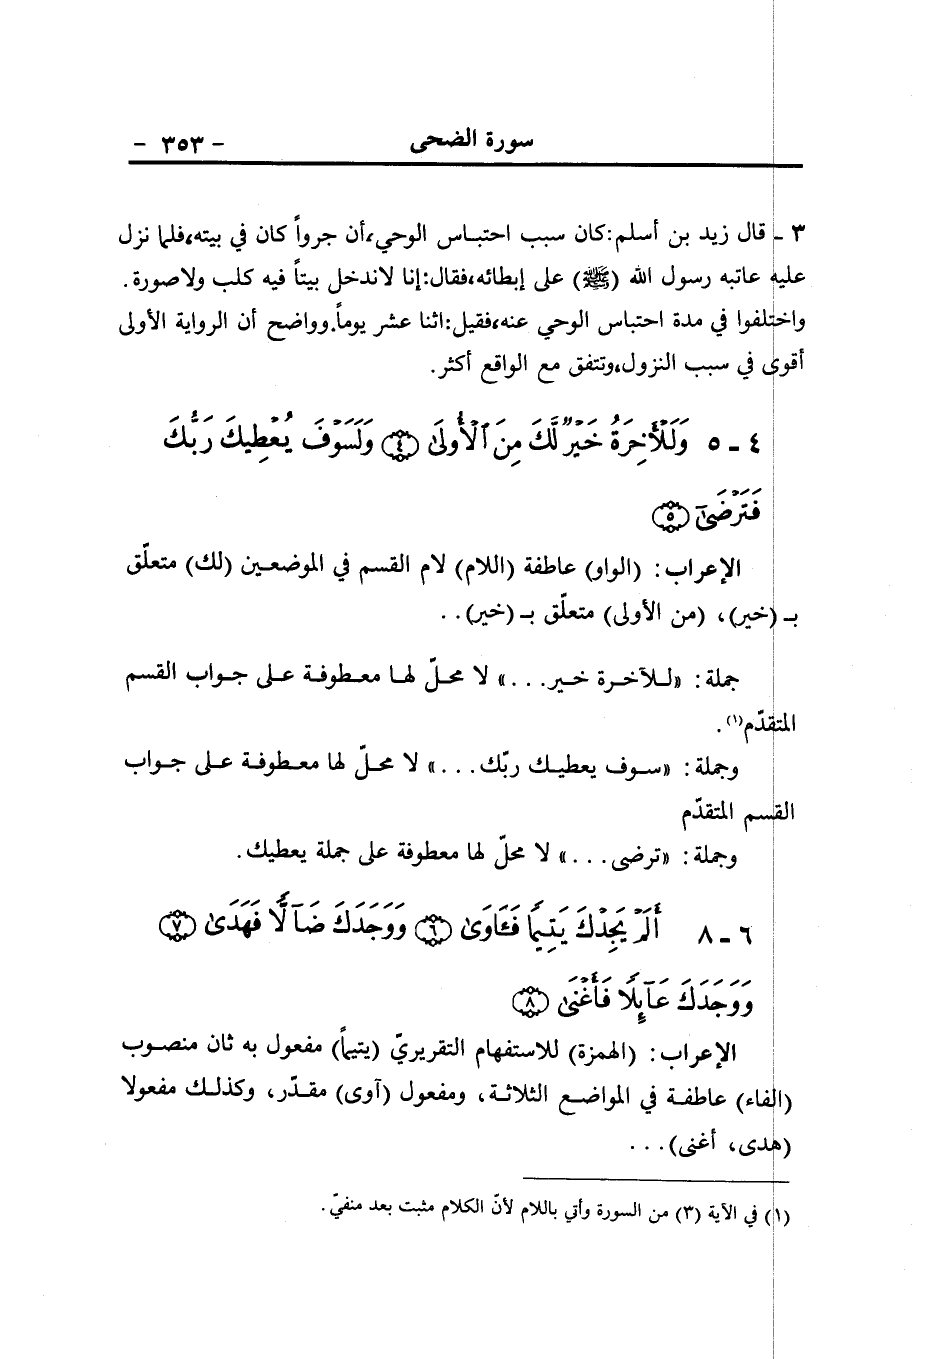 سورة الضحى - ٣٥٣ -
٣ ـ قال زيد بن أسلم:كان سبب احتباس الوحي،أن جرواً كان في بيته،فلما نزل
عليه عاتبه رسول الله (ﷺ) على إبطائه،فقال:إنا لاندخل بيتاً فيه كلب ولاصورة.
واختلفوا في مدة احتباس الوحي عنه،فقيل:اثنا عشر يوماً.وواضح أن الرواية الأولى
أقوى في سبب النزول،وتتفق مع الواقع أكثر.
٤ ـ ٥ وَلَلْأَخِرَةُ خَيْرٌ لَّكَ مِنَ ٱلْأُولَىٰ ﴿٤﴾ وَلَسَوْفَ يُعْطِيكَ رَبُّكَ
فَتَرْضَىٰٓ ﴿٥﴾
الإعراب: (الواو) عاطفة (اللام) لام القسم في الموضعين (لك) متعلّق
بـ (خير)، (من الأولى) متعلّق بـ (خير)..
جملة: «للآخرة خير...» لا محلّ لها معطوفة على جواب القسم
المتقدّم(١).
وجملة: «سوف يعطيك ربّك...» لا محلّ لها معطوفة على جواب
القسم المتقدّم
وجملة: «ترضى...» لا محلّ لها معطوفة على جملة يعطيك.
٦ ـ ٨ أَلَمْ يَجِدْكَ يَتِيمًا فَـَٔاوَىٰ ﴿٦﴾ وَوَجَدَكَ ضَآلًّا فَهَدَىٰ ﴿٧﴾
وَوَجَدَكَ عَآئِلًا فَأَغْنَىٰ ﴿٨﴾
الإعراب: (الهمزة) للاستفهام التقريريّ (يتيماً) مفعول به ثان منصوب
(الفاء) عاطفة في المواضع الثلاثة، ومفعول (آوى) مقدّر، وكذلك مفعولا
(هدى، أغنى)...
(١) في الآية (٣) من السورة وأتي باللام لأنّ الكلام مثبت بعد منفيّ.